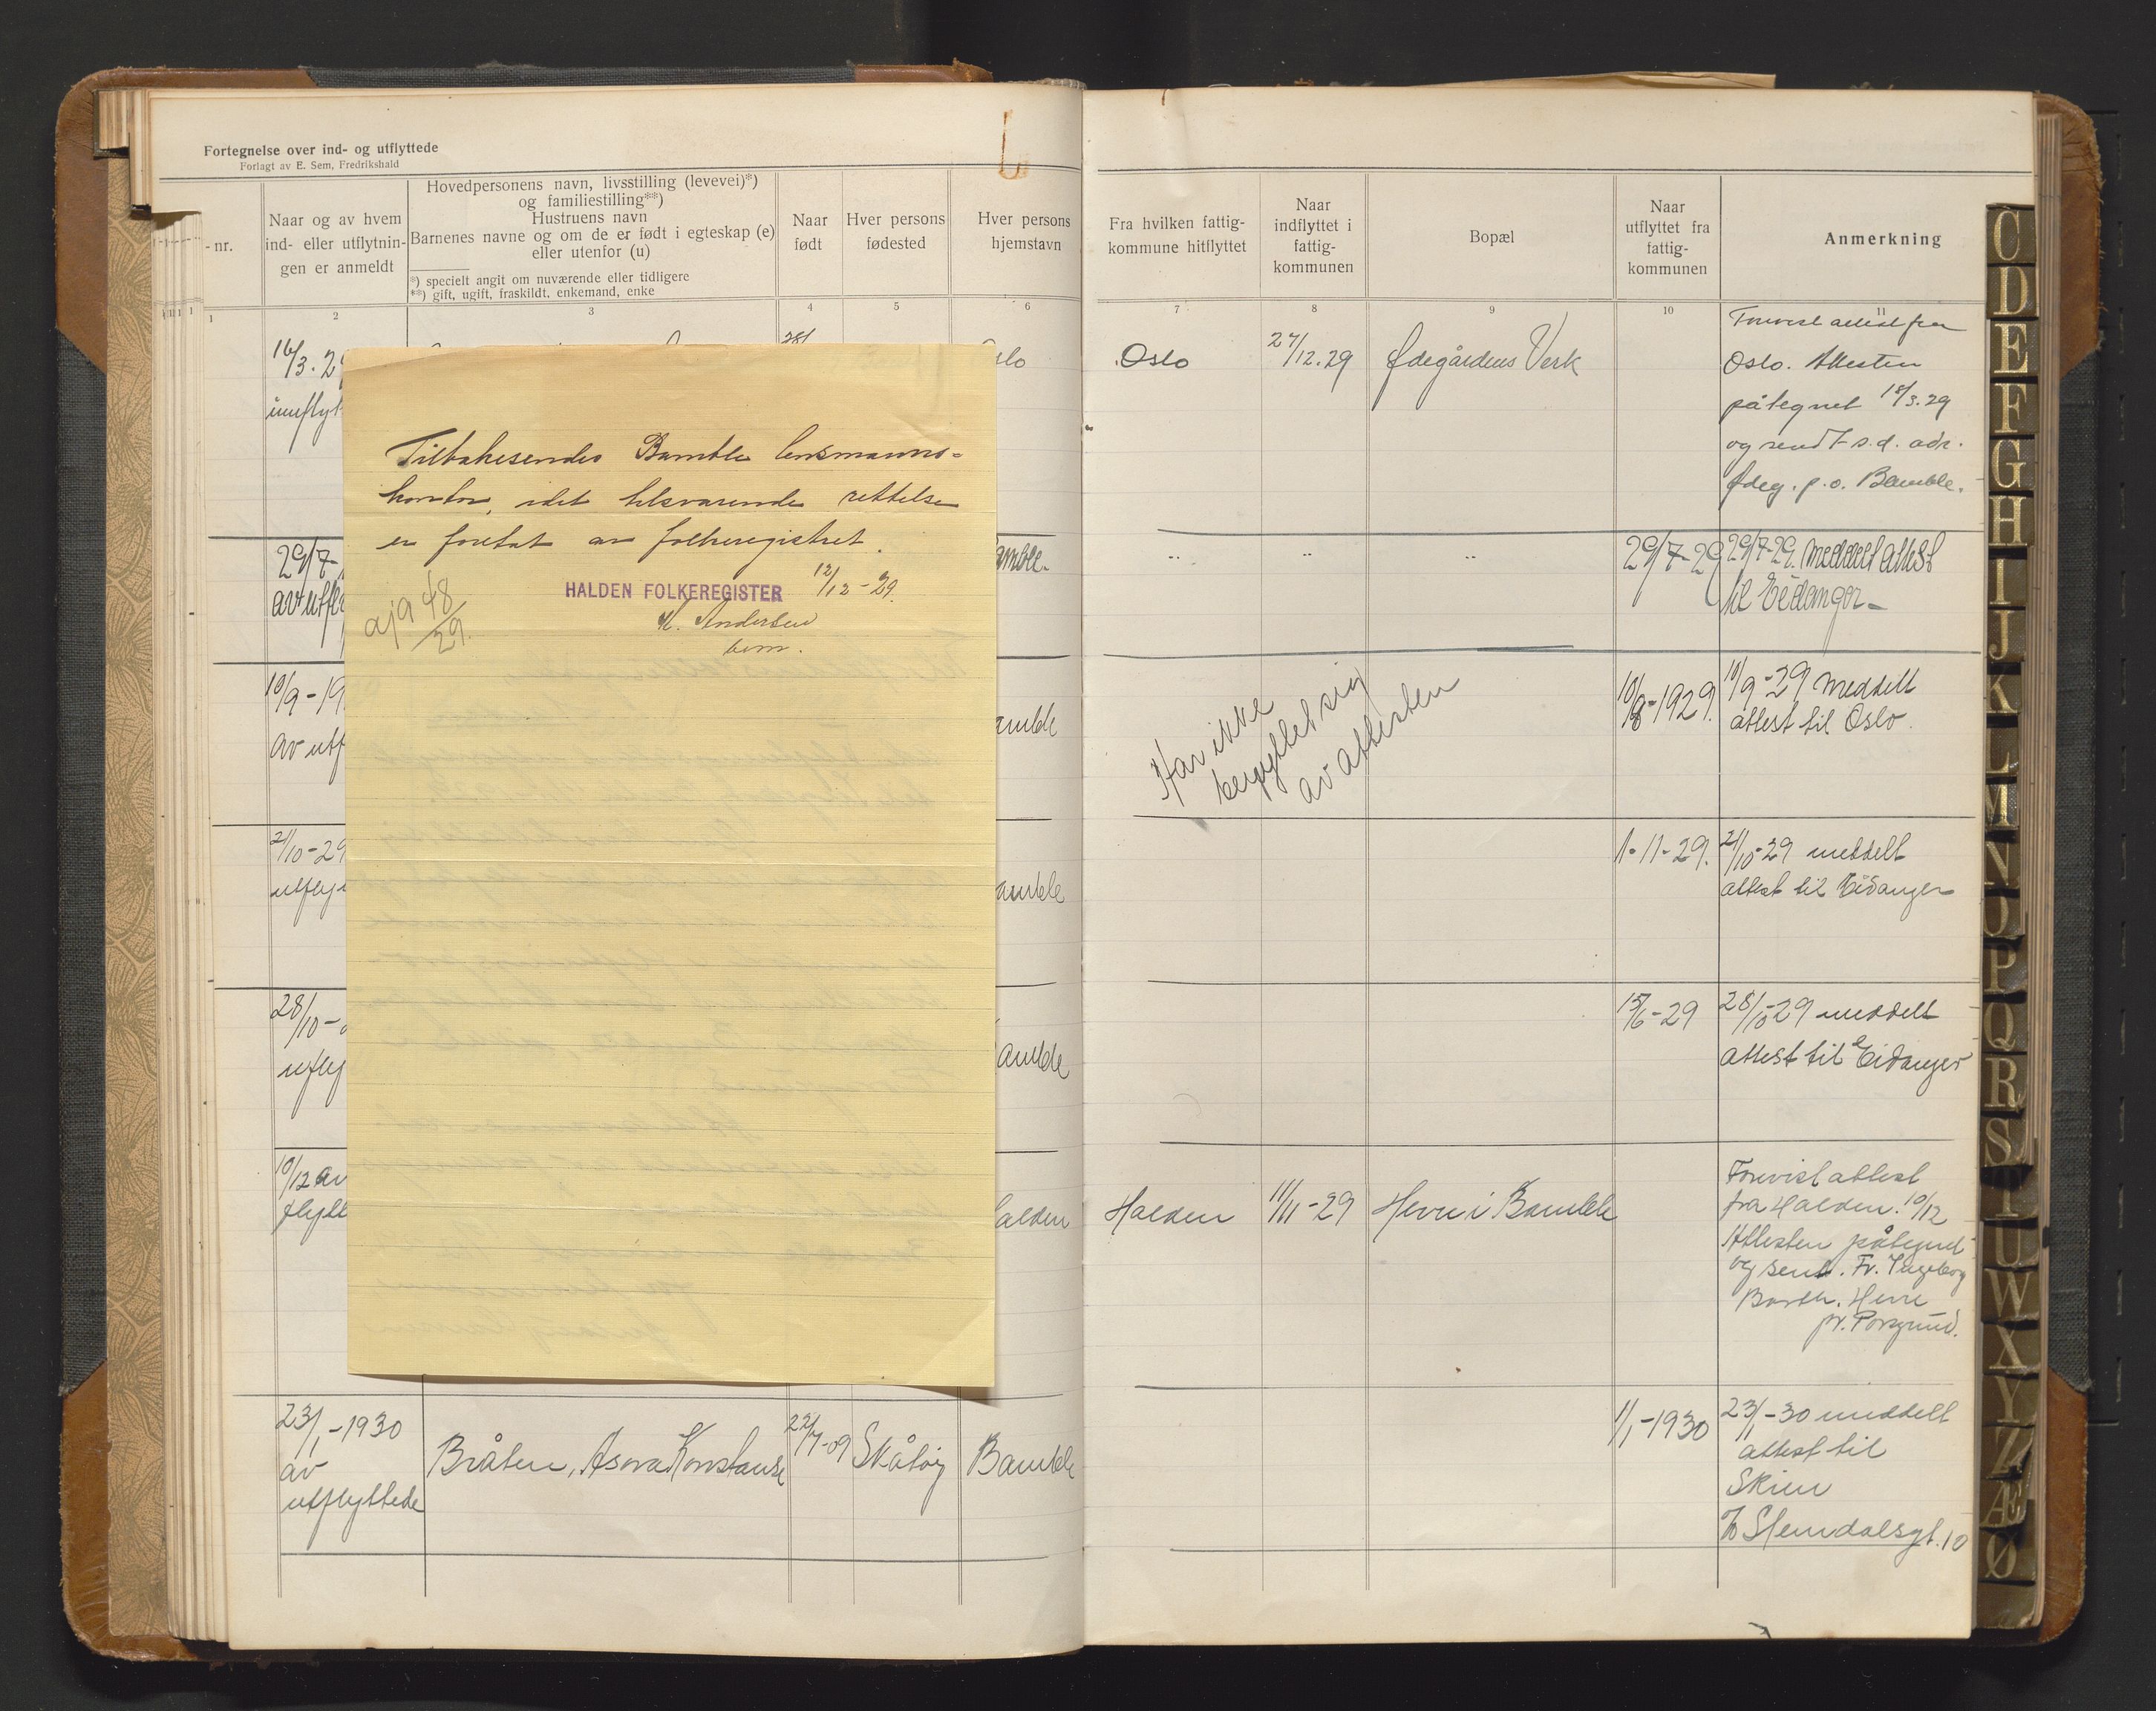 Fortegnelse over ind- og utflyttede
Forlagt av E. Sem, Fredrikshald
- nr.
Naar og av hvem
ind- eller utflytnin-
gen er anmeldt
Hovedpersonens navn, livsstilling (levevei)*)
og familiestilling**)
Hustruens navn
Barnenes navne og om de er født i egteskap (e)
eller utenfor (u)
*) specielt angit om nuværende eller tidligere
**) gift, ugift, fraskildt, enkemand, enke
Naar
født
Hver persons
fødested
Hver persons
hjemstavn
Fra hvilken fattig-
kommune hitflyttet
Naar
indflyttet i
fattig-
kommunen
Bopæl
Naar
utflyttet fra
fattig-
kommunen
Anmerkning
1 2 3 4 5 6 7 8 9 10 11
16/3. 29
innflyt
28/
slo
Oslo
27/12.29
Ødegårdens Verk
Forevist attest fra
Oslo. Attesten
påtegnet 18/3.29
og sendt s.d. adr.
Ødeg. p.o. Bamble.
Tilbakesendes Bamble lensmanns-
kontor, idet tilsvarende rettelse
er foretat av folkeregistret.
HALDEN FOLKEREGISTER 12/12-29.
K. Andersen
bem.
aja 48/29.
29/7-
av utfl
amble.
" " "
29/7-29
29/7-29. Meddelt attest
til Eidanger-
10/9-19
av utf
amble
Har ikke
benyttet sig
av attesten
10/8-1929.
10/9-29 meddelt
attest til Oslo.
21/10-29
utfly
amble
1-11-29.
21/10-29 meddelt
attest til Eidanger
28/10-
utfly
amble
15/6-29
28/10-29 meddelt
attest til Eidanger
10/12 av
flytt
alden
Halden
11/11-29
Herre i Bamble
Forevist attest
fra Halden. 10/12
Attesten påtegnet
og sendt. Fr. Ingeborg
Barth. Herre
pr. Porsgrund.
23/1-1930
av
utflyttede
Bråten, Asora Konstanse
22/7-09
Skåtøy
Bamble
1/1-1930
23/1-30 meddelt
attest til
Skien
Stendalsgt. 10
C
D
E
F
G
H
I
J
K
L
M
N
O
P
Q
R
S
T
U
W
X
Y
Z
Æ
Ø